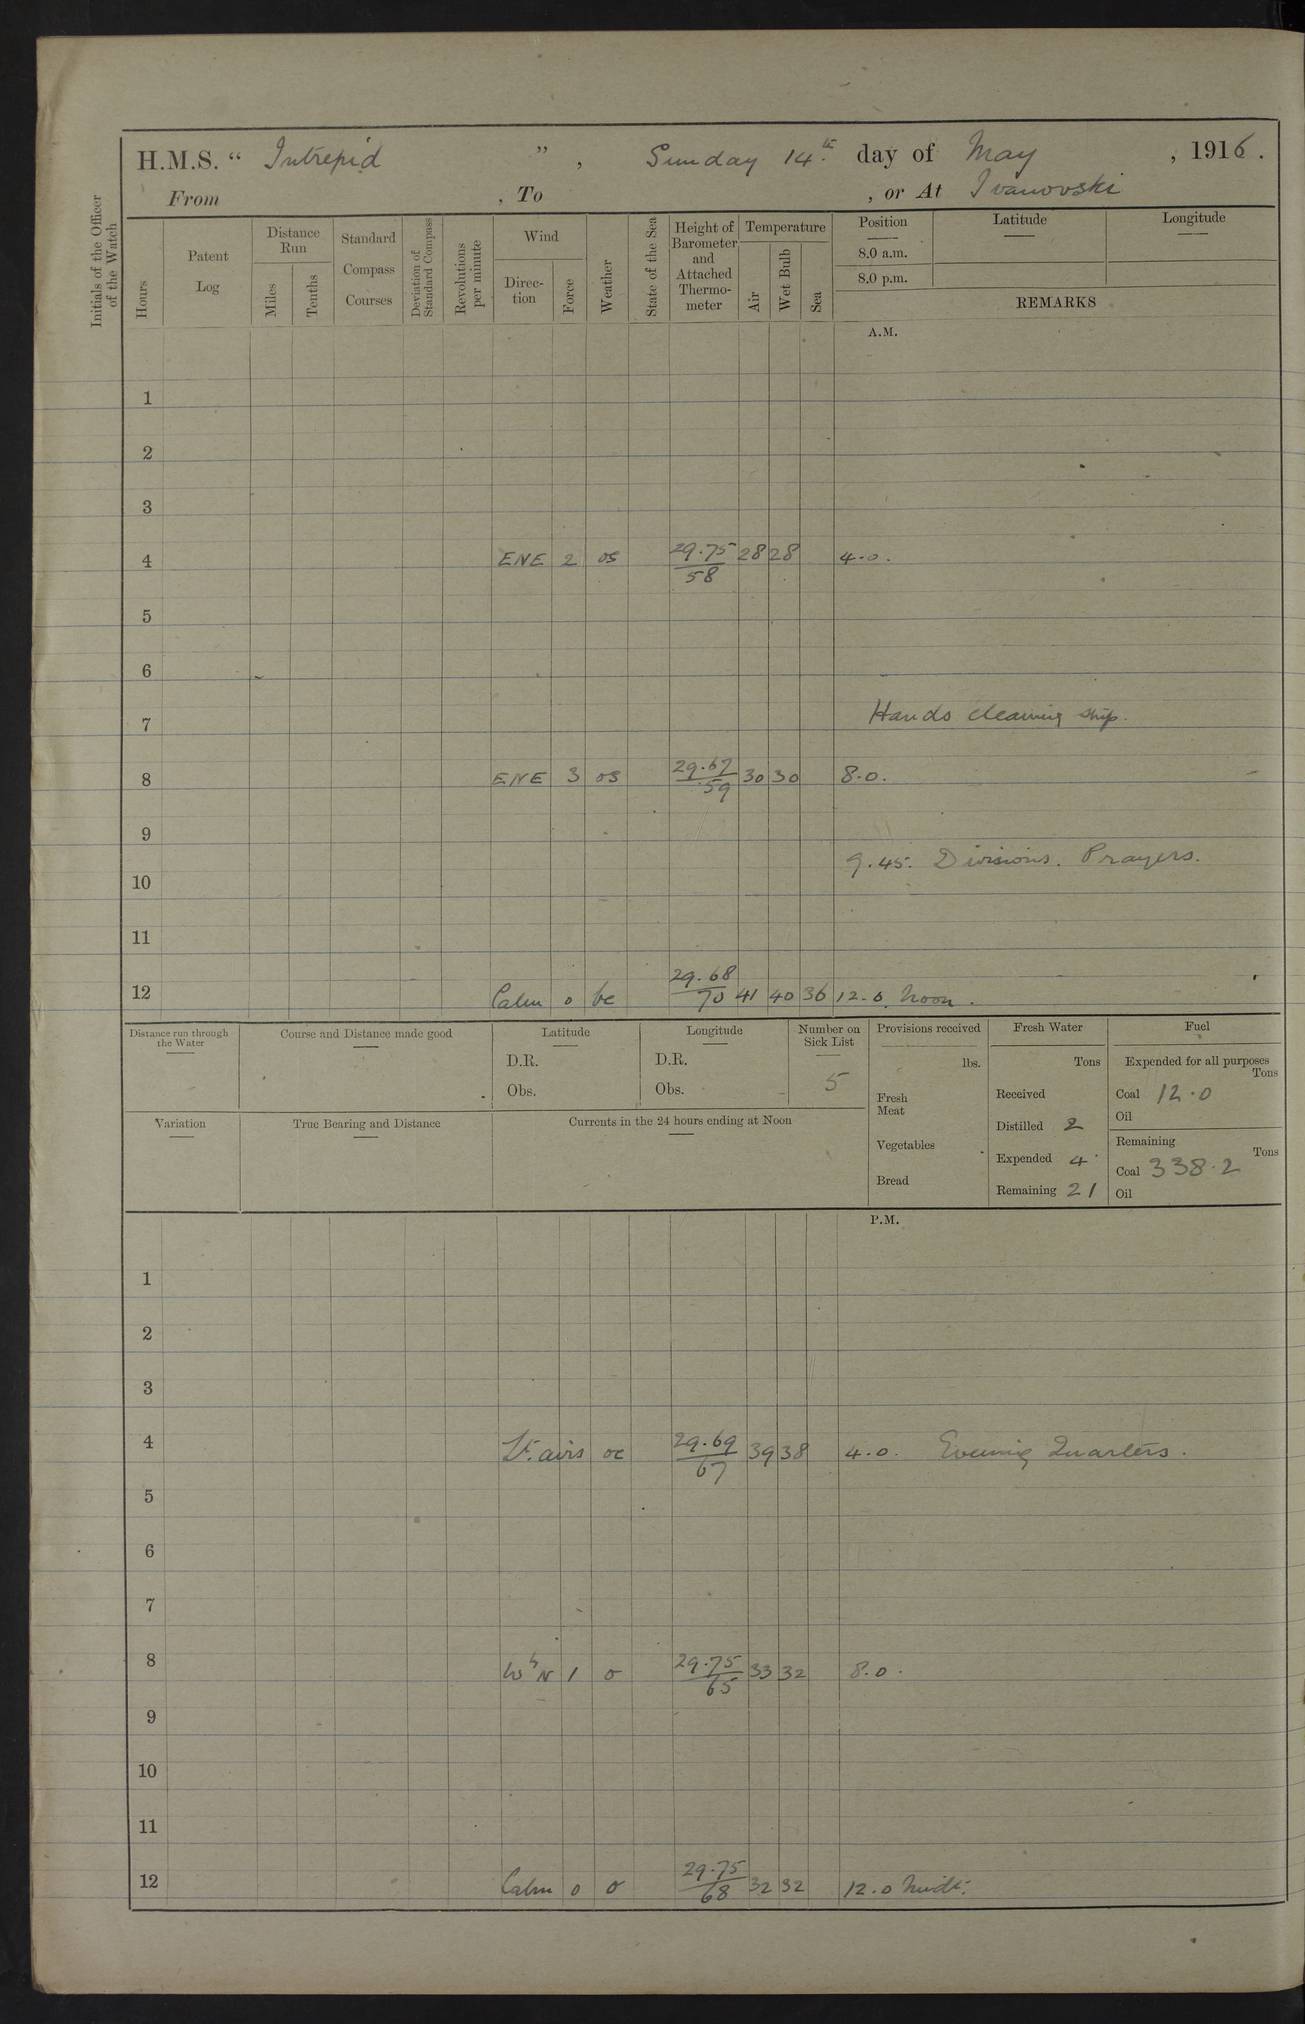 H.M.S. “ Intrepid ” , Sunday 14th day of May , 1916 .
From , To , or At Ivanovski
Initials of the Officer of the Watch
Hours
Patent Log
Distance Run
Miles
Tenths
Standard Compass Courses
Deviation of Standard Compass
Revolutions per minute
Wind
Direction
Force
Weather
State of the Sea
Height of Barometer and Attached Thermometer
Temperature
Air
Wet Bulb
Sea
Position
Latitude
Longitude
8.0 a.m.
8.0 p.m.
REMARKS
A.M.
1
2
3
4 ENE 2 os 29.75/58 28 28 4.0.
5
6
7 Hands cleaning ship.
8 ENE 3 os 29.67/59 30 30 8.0.
9
9.45. Divisions. Prayers.
10
11
12 Calm 0 bc 29.68/70 41 40 36 12.0. Noon.
Distance run through the Water
Course and Distance made good
Latitude
D.R.
Obs.
Longitude
D.R.
Obs.
Number on Sick List
5
Provisions received
lbs.
Fresh Meat
Vegetables
Bread
Fresh Water
Tons
Received
Distilled 2
Expended 4
Remaining 21
Fuel
Expended for all purposes
Tons
Coal 12.0
Oil
Remaining
Tons
Coal 338.2
Oil
Variation
True Bearing and Distance
Currents in the 24 hours ending at Noon
P.M.
1
2
3
4 Lt. airs oc 29.69/67 39 38 4.0. Evening Quarters.
5
6
7
8 WbN 1 o 29.75/65 33 32 8.0.
9
10
11
12 Calm 0 o 29.75/68 32 32 12.0 Midt.